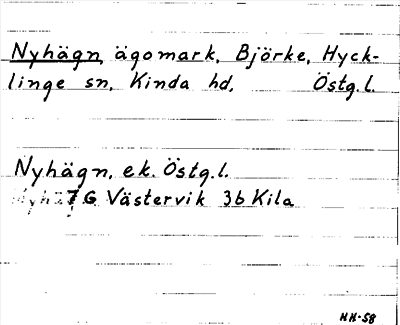 Nyhägn, ägomark, Björke, Hyck-
linge sn, Kinda hd, Östg.l.
Nyhägn, ek. Östg.l.
7 G Västervik 3b Kila
HH-58